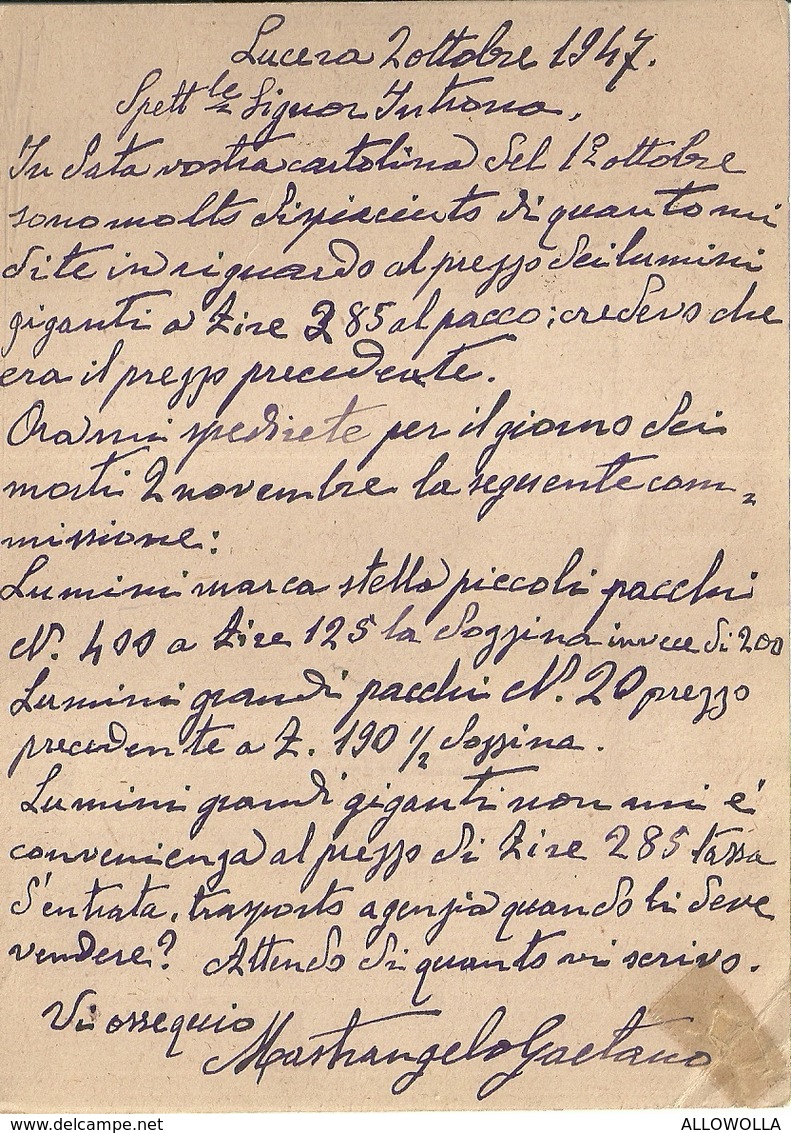 Lucera 2 ottobre 1947.
Spett.le Signor Introna,
In data vostra cartolina del 1º ottobre
sono molto dispiaciuto di quanto mi
dite in riguardo al prezzo dei lumini
giganti a Lire 285 al pacco; credevo che
era il prezzo precedente.
Ora mi spedirete per il giorno dei
morti 2 novembre la seguente com=
missione:
Lumini marca stella piccoli pacchi
N. 400 a Lire 125 la dozzina invece di 200
Lumini grandi pacchi N. 20 prezzo
precedente a L. 190 ½ dozzina.
Lumini grandi giganti non mi é
convenienza al prezzo di Lire 285 tassa
d'entrata, trasporto agenzia quando li deve
vendere? Attendo di quanto vi scrivo.
Vi ossequio
Mastrangelo Gaetano
www.delcampe.net
ALLOWOLLA